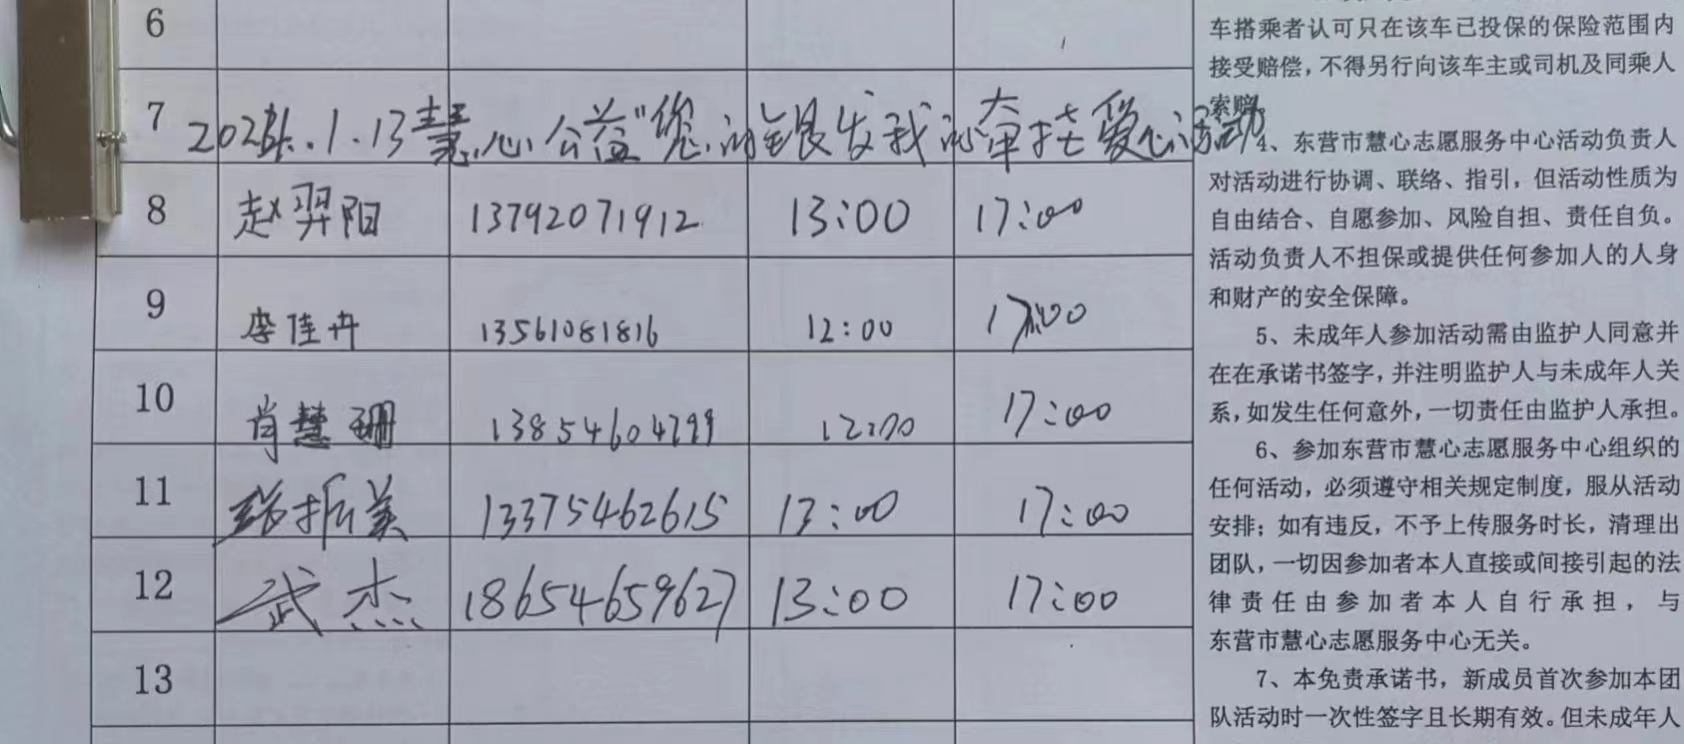 6
7 2024.1.13慧心公益"您的银发我的牵挂爱心活动
8 赵羿阳 13792071912 13:00 17:00
9 李佳卉 13561081816 12:00 17:00
10 肖慧珊 13854604799 12:00 17:00
11 张振美 13375462615 13:00 17:00
12 武杰 18654659627 13:00 17:00
13
车搭乘者认可只在该车已投保的保险范围内
接受赔偿，不得另行向该车主或司机及同乘人
索赔。
4、东营市慧心志愿服务中心活动负责人
对活动进行协调、联络、指引，但活动性质为
自由结合、自愿参加、风险自担、责任自负。
活动负责人不担保或提供任何参加人的人身
和财产的安全保障。
5、未成年人参加活动需由监护人同意并
在在承诺书签字，并注明监护人与未成年人关
系，如发生任何意外，一切责任由监护人承担。
6、参加东营市慧心志愿服务中心组织的
任何活动，必须遵守相关规定制度，服从活动
安排；如有违反，不予上传服务时长，清理出
团队，一切因参加者本人直接或间接引起的法
律责任由参加者本人自行承担，与
东营市慧心志愿服务中心无关。
7、本免责承诺书，新成员首次参加本团
队活动时一次性签字且长期有效。但未成年人